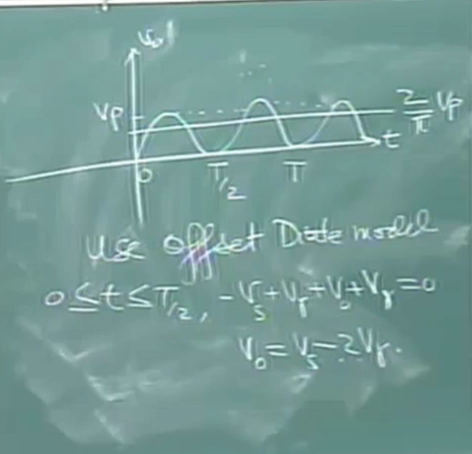 v₀
Vp
2/π Vp
t
0 T/2 T
Use Offset Diode model
0 ≤ t ≤ T/2, -V_s + V_γ + V_0 + V_γ = 0
V_0 = V_s - 2V_γ.